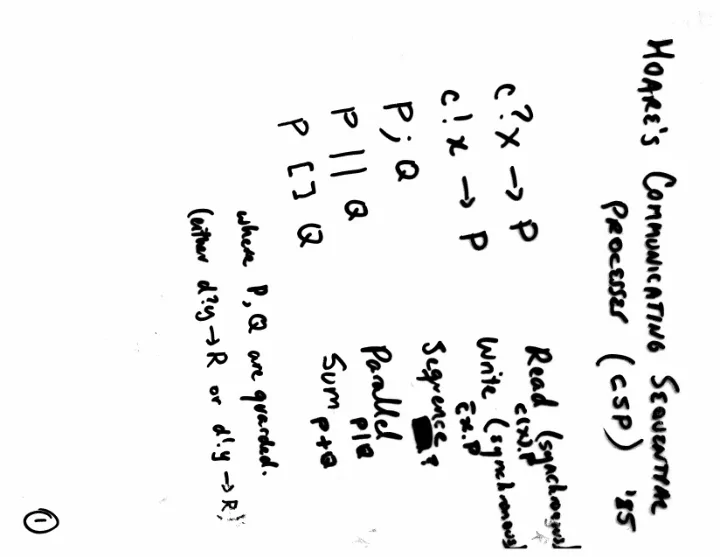 HOARE'S COMMUNICATING SEQUENTIAL
PROCESSES (CSP) '85
c?x → P Read (synchronous)
c(x).P
c!x → P Write (synchronous)
c̄x.P
P ; Q Sequence ?
P || Q Parallel
P|Q
P [] Q Sum
P+Q
where P, Q are guarded.
(either d?y → R or d!y → R)
1